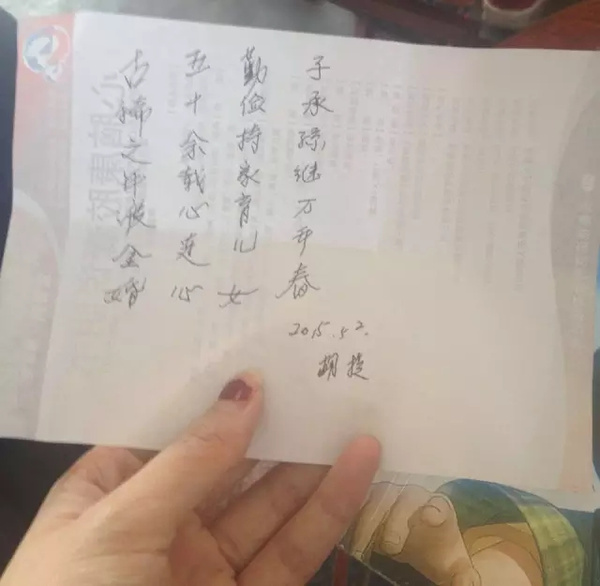 古稀之年渡金婚
五十余载心连心
勤俭持家育儿女
子承孫继万年春
2015.5.2.
胡捷